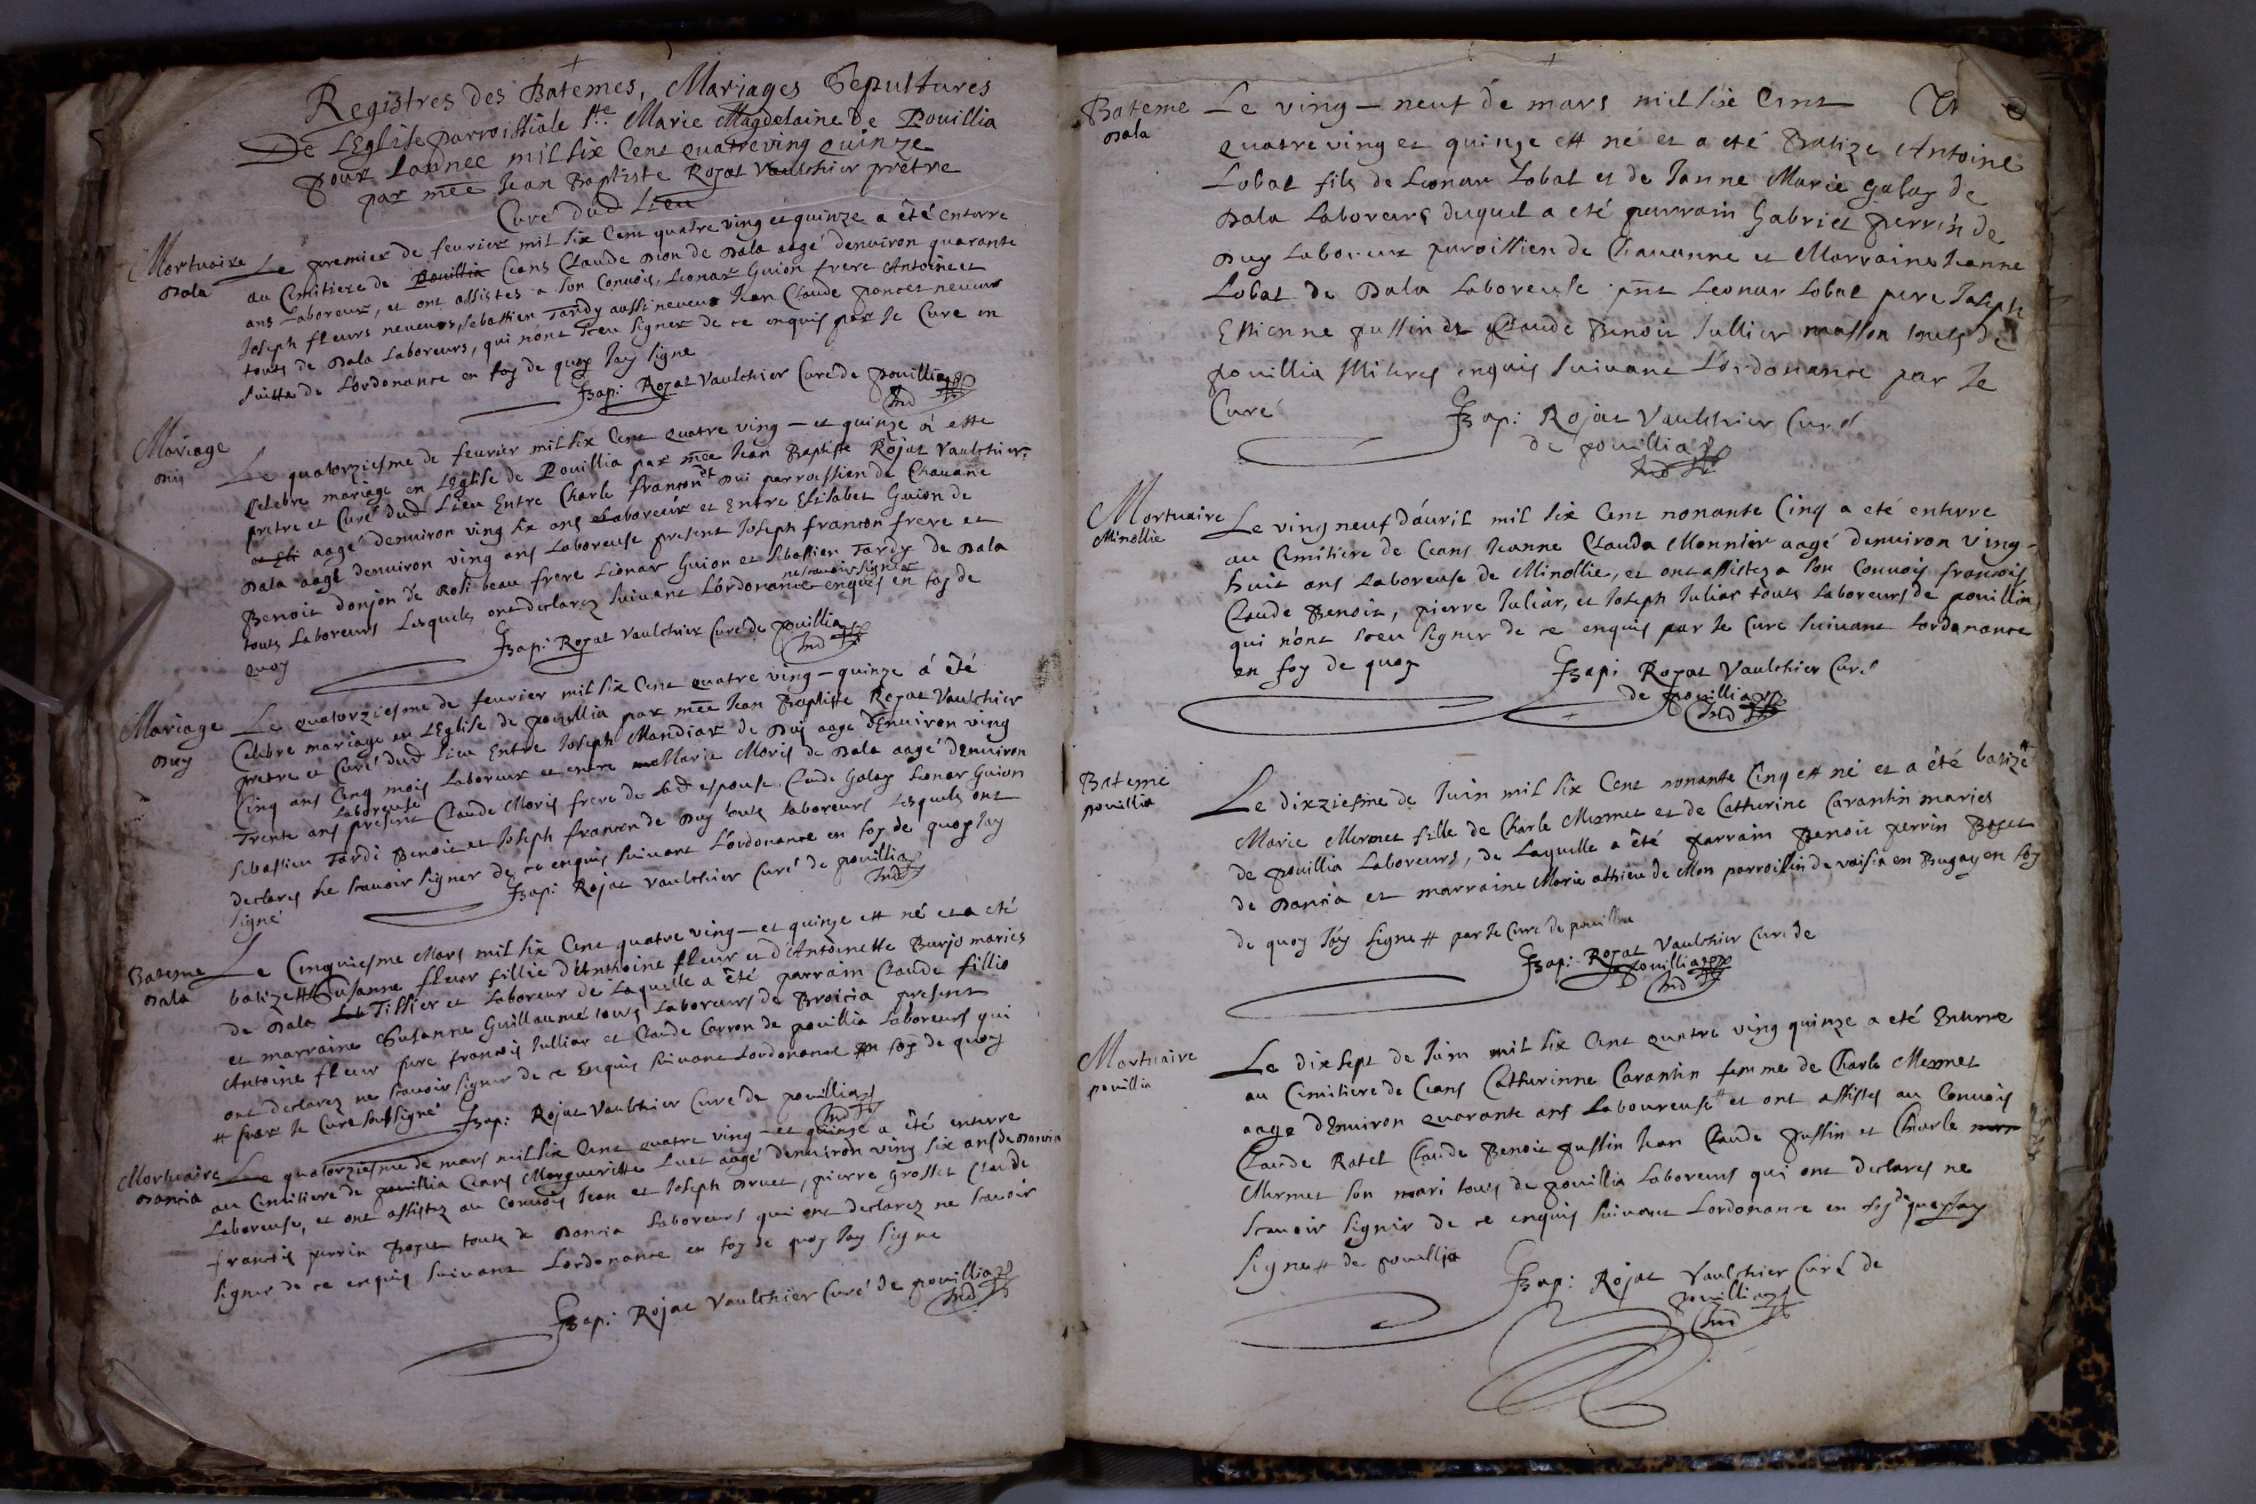 Registres des Batemes, Mariages Sepultures
De LEglise parroissiale Ste Marie Magdelaine de Pouillia
pour Lannee mil six Cent quatre ving quinze
par mee Jean Baptiste Rojat Vaulchier pretre
Curé dud Lieu
Mortuaire
Dala
Le premier de feurier mil six Cent quatre ving et quinze a êté enterre
au Cimitiere de Pouillia Ceans Claude Dion de Dala aagé denuiron quarante
ans Laboreur, et ont assistes a son Conuois, Lionar Guion frere Antoine et
Joseph fleurs neueus, sebastien Tardy aussi neueus Jean Claude poncet neueus
touts de Dala Laboreurs, qui n'ont sceu signer de ce enquis par Je Cure en
suitte de Lordonance en foy de quoy Jay signe
Bap: Rojat Vaulchier Curé de pouillia
Mariage
Dui
Le quatorziesme de feurier mil six Cent quatre ving - et quinze à este
Celebre mariage en LEglise de Pouillia par mee Jean Baptiste Rojat Vaulchier
pretre et Curé dud Lieu Entre Charle francon de Dui parroissien de Chauane
aagé denuiron ving six ans Laboreur et Entre Elisabet Guion de
Dala aagé denuiron ving ans Laboreuse present Joseph francon frere et
Benoit donjon de beau frere Lionar Guion et sebastien Tardy de Dala
ne scauoir signer
touts Laboreurs Lesquels ont declarez suiuant Lordonance enquis en foy de
quoy
Bap: Rojat Vaulchier Curé de pouillia
Mariage
Duy
Le quatorziesme de feurier mil six Cent quatre ving - quinze á êté
Celebre mariage en LEglise de pouillia par mee Jean Baptiste Rojat Vaulchier
pretre et Curé dud Lieu Entre Joseph Mandiar de Dui aage dEnuiron ving
Cinq ans Cinq mois Laboreur et entre Marie Moris de Dala aagé dEnuiron
Laboreuse
Trente ans present Claude Moris frere de lad espouse, Claude Galay Lionar Guion
sebastien Tardi Benoit et Joseph francon de Duy touts laboreurs Lesquels ont
declares ne scauoir signer de ce enquis suiuant Lordonance en foy de quoy Jay
signé
Bap: Rojat Vaulchier Curé de pouillia
Bateme
Dala
Le Cinquiesme Mars mil six Cent quatre ving - et quinze est né et a eté
batize Susanne fleur fillie dAnthoine fleur et d'Antoinette Burjo maries
de Dala Tissier et Laboreur de Laquelle a êté parrain Claude fillio
et marraine Susanne Guillaume touts Laboreurs de Broisia present
Antoine fleur pere francois Julliar et Claude Carron de pouillia Laboreurs qui
ont declarez ne scauoir signer de ce Enquis suiuant Lordonance en foy de quoy
par Je Cure soussigné
Bap: Rojat Vaulchier Curé de pouillia
Mortuaire
Dancia
Le quatorziesme de mars mil six Cent quatre ving - et quinze a êté enterre
au Cimitiere de pouillia Ceans Margueritte Luet aagé denuiron ving six ans de Dancia
Laboreuse, et ont assistez au Conuois Jean et Joseph Druet, pierre Grosset Claude
francois perrin Boget touts de Dancia Laboreurs qui ont declarez ne scauoir
signer de ce enquis suiuant Lordonance en foy de quoy Jay signe
Bap: Rojat Vaulchier Curé de pouillia
Bateme
Dala
Le ving - neuf de mars mil six Cent
quatre ving et quinze est né et a eté Batize Antoine
Lobat fils de Leonar Lobat et de Janne Marie Galay de
Dala Laboreurs duquel a eté parrain Gabriel perrin de
Duy Laboreur paroissien de Chauanne et Marraine Jeanne
Lobat de Dala Laboreuse pnt Leonar Lobat pere Joseph
Estienne pussin et Claude Benoit Jullier masson touts de
pouillia enquis suiuant Lordonance par Je
Curé
Bap: Rojat Vaulchier Curé
de pouillia
Mortuaire
Minollie
Le ving neuf dáuril mil six Cent nonante Cinq a eté enterre
au Cimitiere de Ceans Jeanne Clauda Monnier aagé denuiron Ving -
huit ans Laboreuse de Minollie, et ont assistez a son Conuois francois
Claude Benoit, pierre Juliar, et Joseph Juliar touts Laboreurs de pouillia
qui nont sceu signer de ce enquis par Je Cure suiuant Lordonance
en foy de quoy
Bap: Rojat Vaulchier Curé
de pouillia
Bateme
pouillia
Le dixziesme de Juin mil six Cent nonante Cinq est né et a êté batizé
Marie Mermet fille de Charle Mermet et de Catturine Carantin maries
de pouillia Laboreurs, de Laquelle a êté parrain Benoit perrin Boget
de Dancia et marraine Marie athieu de Mon parroissin de voisia en Bugay en foy
de quoy Jáy signe # par Je Cure de pouillia
Bap: Rojat Vaulchier Curé de
pouillia
Mortuaire
pouillia
Le dix sept de Juin mil six Cent quatre ving quinze a eté Enterre
au Cimitiere de Ceans Catturinne Carantin femme de Charle Mermet
aage dEnuiron quarante ans Laboureuse et ont assistes au Conuois
Claude Ratel Claude Benoit pussin Jean Claude pussin et Charle
Mermet son mari touts de pouillia Laboreurs qui ont declares ne
scauoir signer de ce enquis suiuant Lordonance en foy de quoy Jay
signe # de pouillia
Bap: Rojat Vaulchier Curé de
pouillia